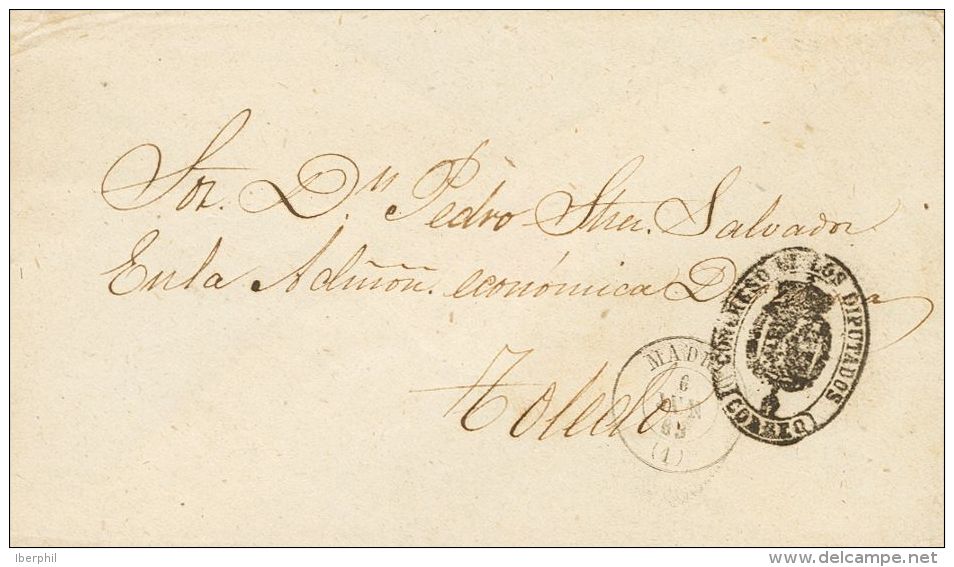 Sor. Dn. Pedro Salvador.
En la Admon. económica D
Toledo
CONGRESO DE LOS DIPUTADOS
CORREO
MADR
6
JUN
(1)
Iberphil
www.delcampe.net